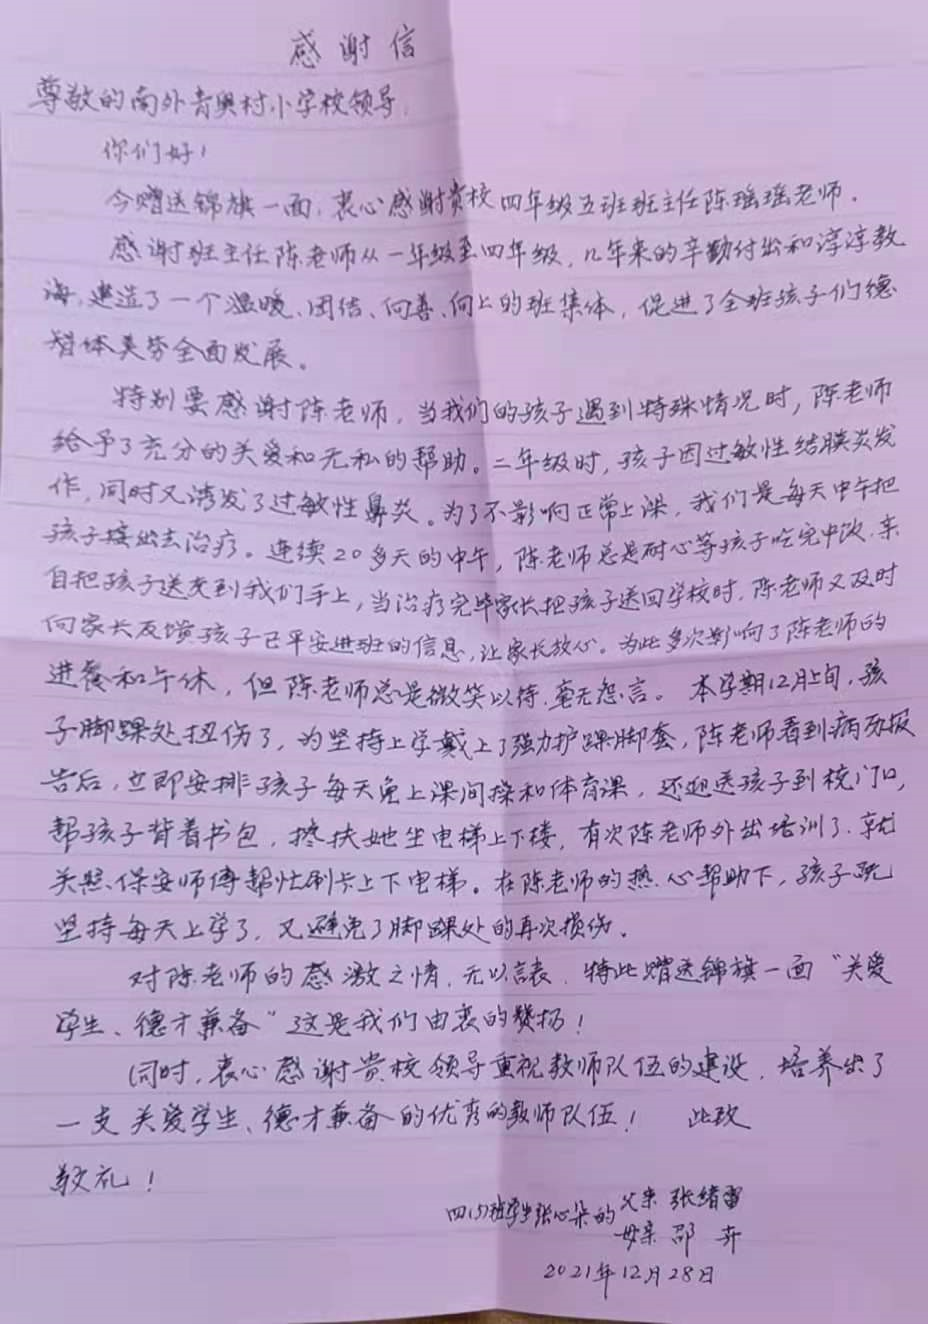 感谢信
尊敬的南外青奥村小学校领导,
你们好!
今赠送锦旗一面,衷心感谢贵校四年级五班班主任陈瑶瑶老师.
感谢班主任陈老师从一年级至四年级,几年来的辛勤付出和谆谆教
海,建造了一个温暖、团结、向善、向上的班集体,促进了全班孩子们德
智体美劳全面发展。
特别要感谢陈老师,当我们的孩子遇到特殊情况时,陈老师
给予了充分的关爱和无私的帮助。二年级时,孩子因过敏性结膜炎发
作,同时又诱发了过敏性鼻炎。为了不影响正常上课,我们是每天中午把
孩子接出去治疗。连续20多天的中午,陈老师总是耐心等孩子吃完中饭.亲
自把孩子送交到我们手上,当治疗完毕家长把孩子送回学校时,陈老师又及时
向家长反馈孩子已平安进班的信息,让家长放心。为此多次影响了陈老师的
进餐和午休,但陈老师总是微笑以待.毫无怨言。本学期12月上旬,孩
子脚踝处扭伤了,为坚持上学戴上了强力护踝脚套,陈老师看到病历报
告后,立即安排孩子每天免上课间操和体育课,还迎送孩子到校门口,
帮孩子背着书包,搀扶她坐电梯上下楼,有次陈老师外出培训了.就
关照保安师傅帮忙刷卡上下电梯。在陈老师的热心帮助下,孩子既
坚持每天上学了,又避免了脚踝处的再次损伤。
对陈老师的感激之情,无以言表,特此赠送锦旗一面“关爱
学生、德才兼备”这是我们由衷的赞扬!
同时,衷心感谢贵校领导重视教师队伍的建设,培养出了
一支关爱学生、德才兼备的优秀的教师队伍! 此致
敬礼!
四(5)班学生张心朵的父亲 张绪雷
母亲 邵卉
2021年12月28日